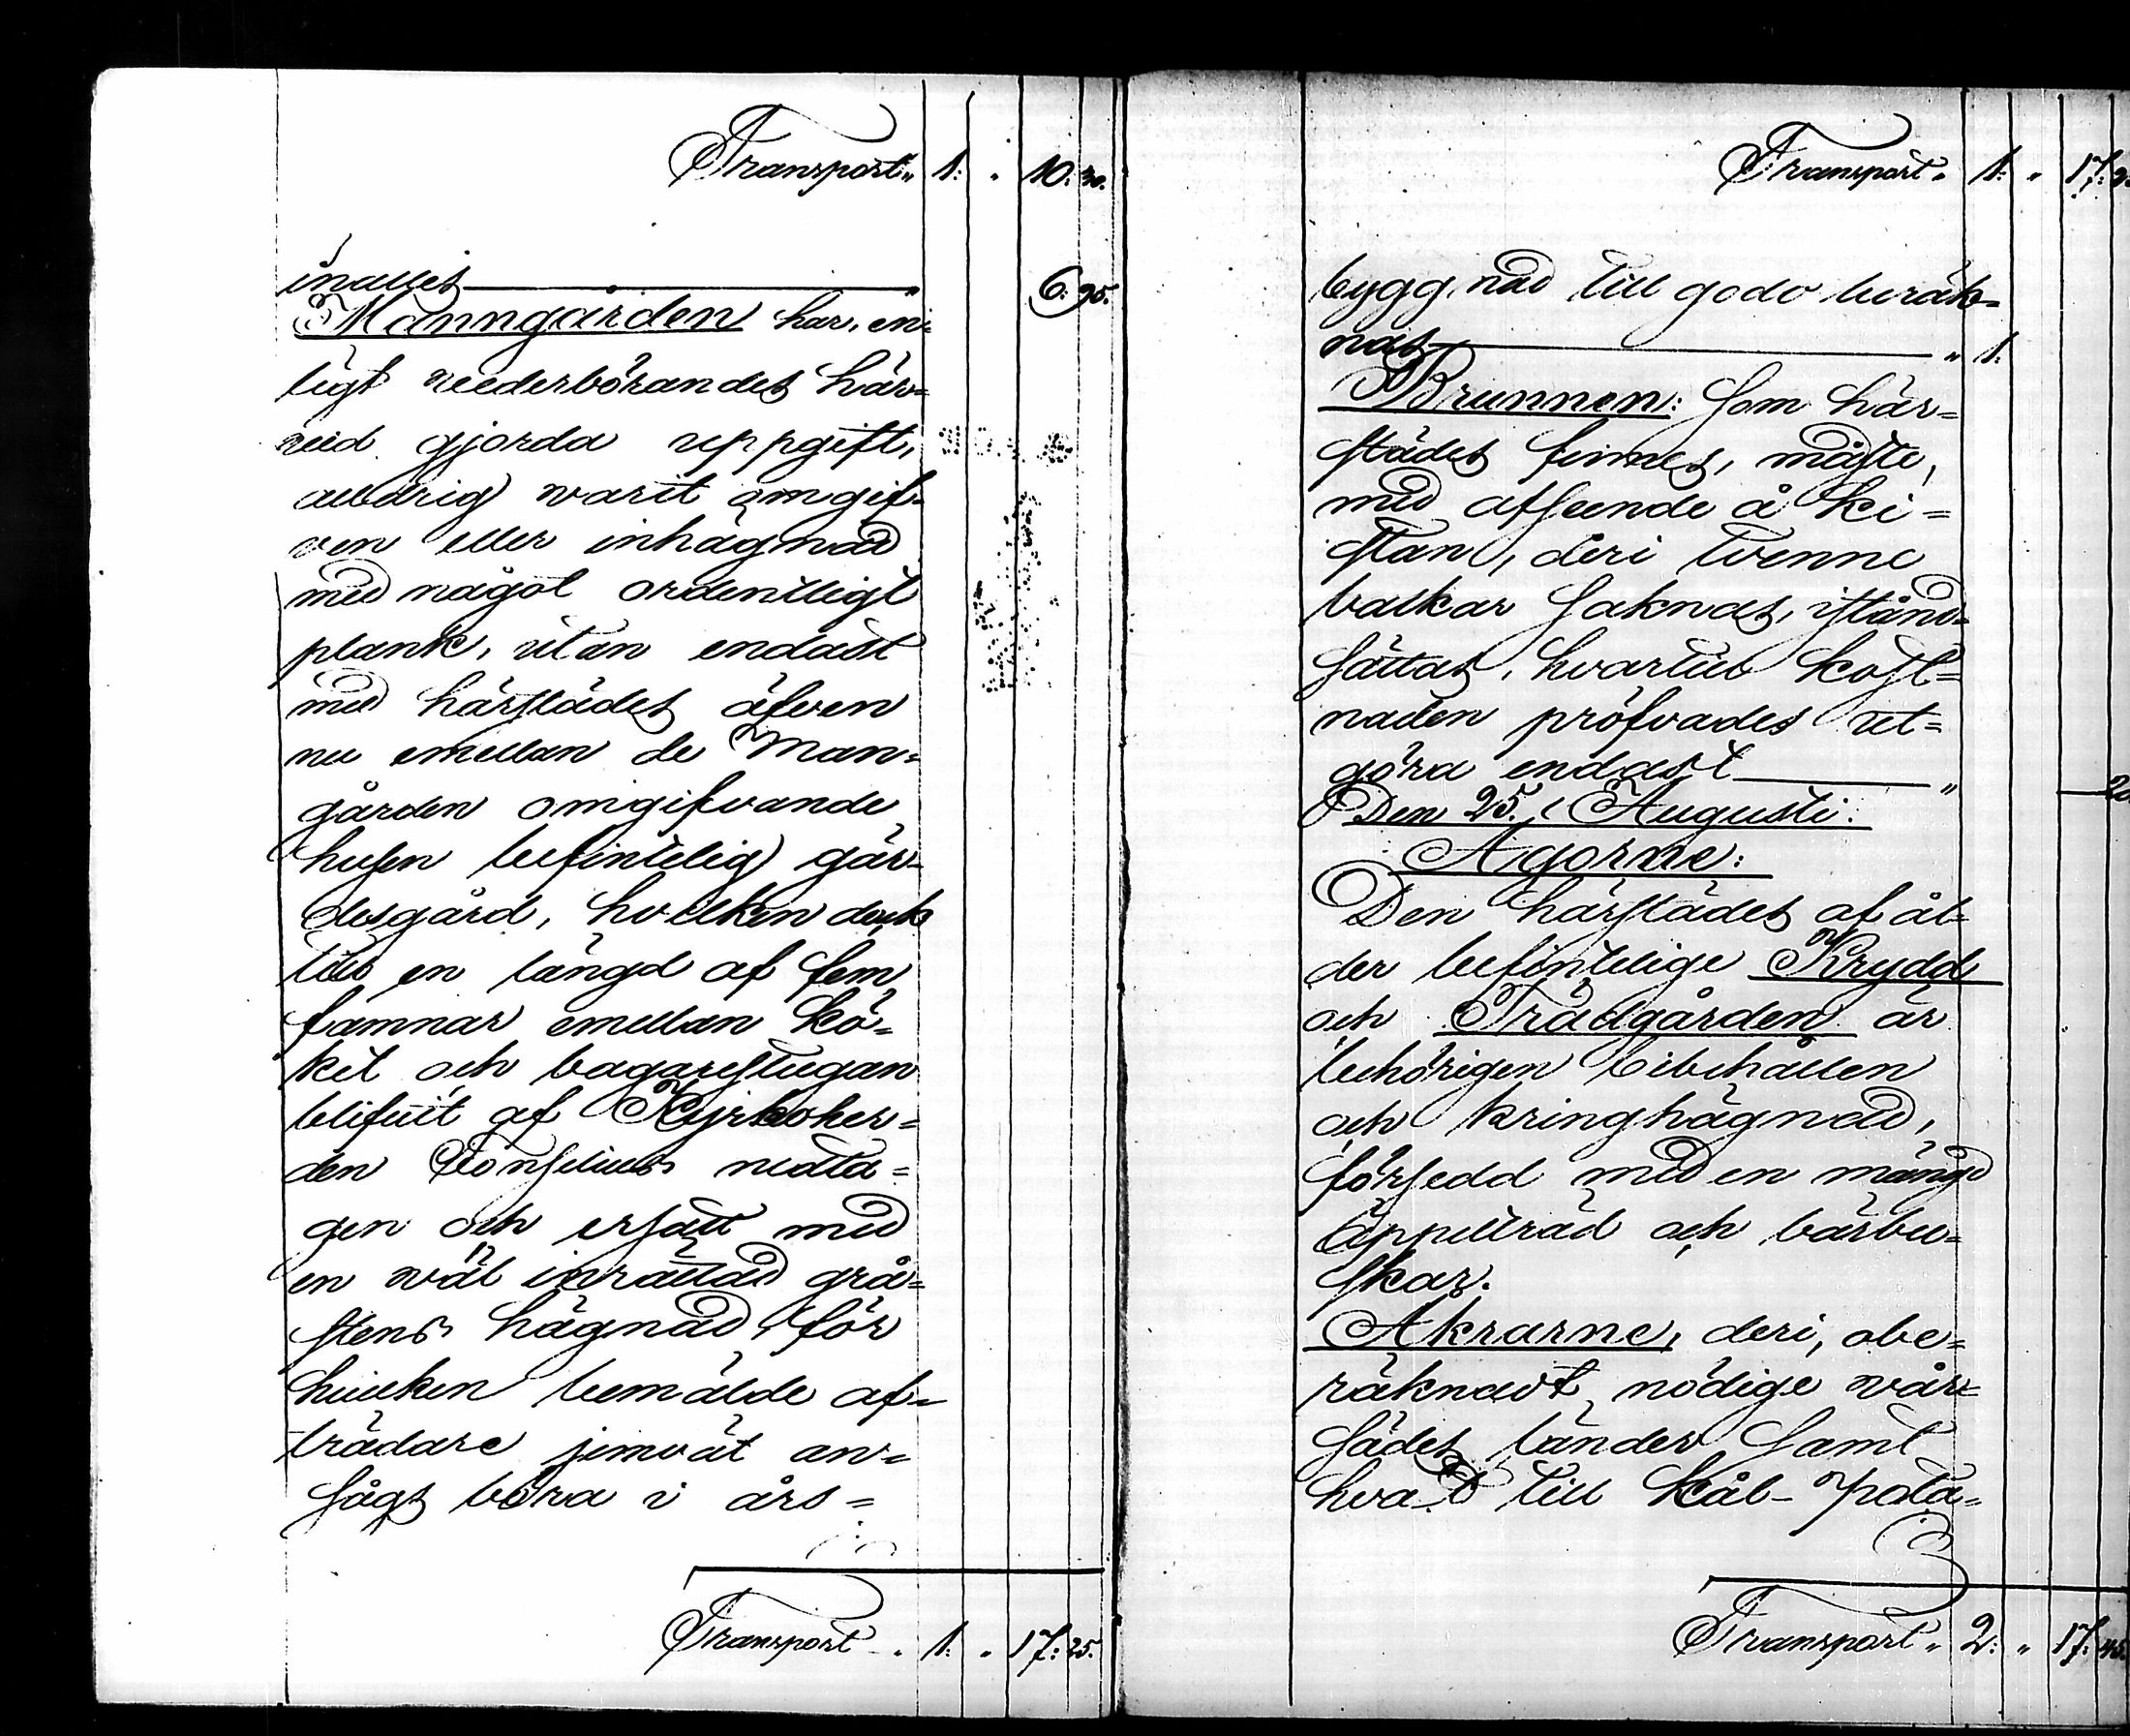 Transport „ 1: „ 10: 30.
inalles „ 6: 95.
Manngården har, en=
ligt vederbörandes här=
vid gjorda uppgift,
aldrig warit omgif=
ven eller inhägnad
med något ordentligt
plank, utan endast
med härstädes äfven
nu emellan de Man=
gården omgifvande
husen befintelig gär=
desgård, hvilken dock
till en längd af fem
famnar emellan Kö=
ket och bagarestugan
blifvit af Kyrkoher=
den Consilius nedta=
gen och ersatt med
en wäl inrättad grå=
stens hägnad, för
hvilken bemälde af=
trädare jemväl an=
sågs böra i års=
Transport „ 1: „ 17: 25.
Transport „ 1: „ 17: 2
byggnad till godo beräk=
nas „ 1.
Brunnen: Som här=
städes finnes, måste,
med afseende å Ki=
stan, deri tvenne
balkar saknas, istånd=
sättas, hvartill kost=
naden pröfvades ut=
göra endast „ 20
Den 25. Augusti:
Ägorne:
Den härstädes af ål=
der befintelige Krydd
och Trädgården är
behörigen bibehållen
och kringhägnad,
försedd med en mängd
Äppelträd och bärbu=
skar.
Åkrarne, deri, obe=
räknadt nödige vår=
sädes länder samt
hvad till Kål- Pota=
Transport „ 2: „ 17: 45.